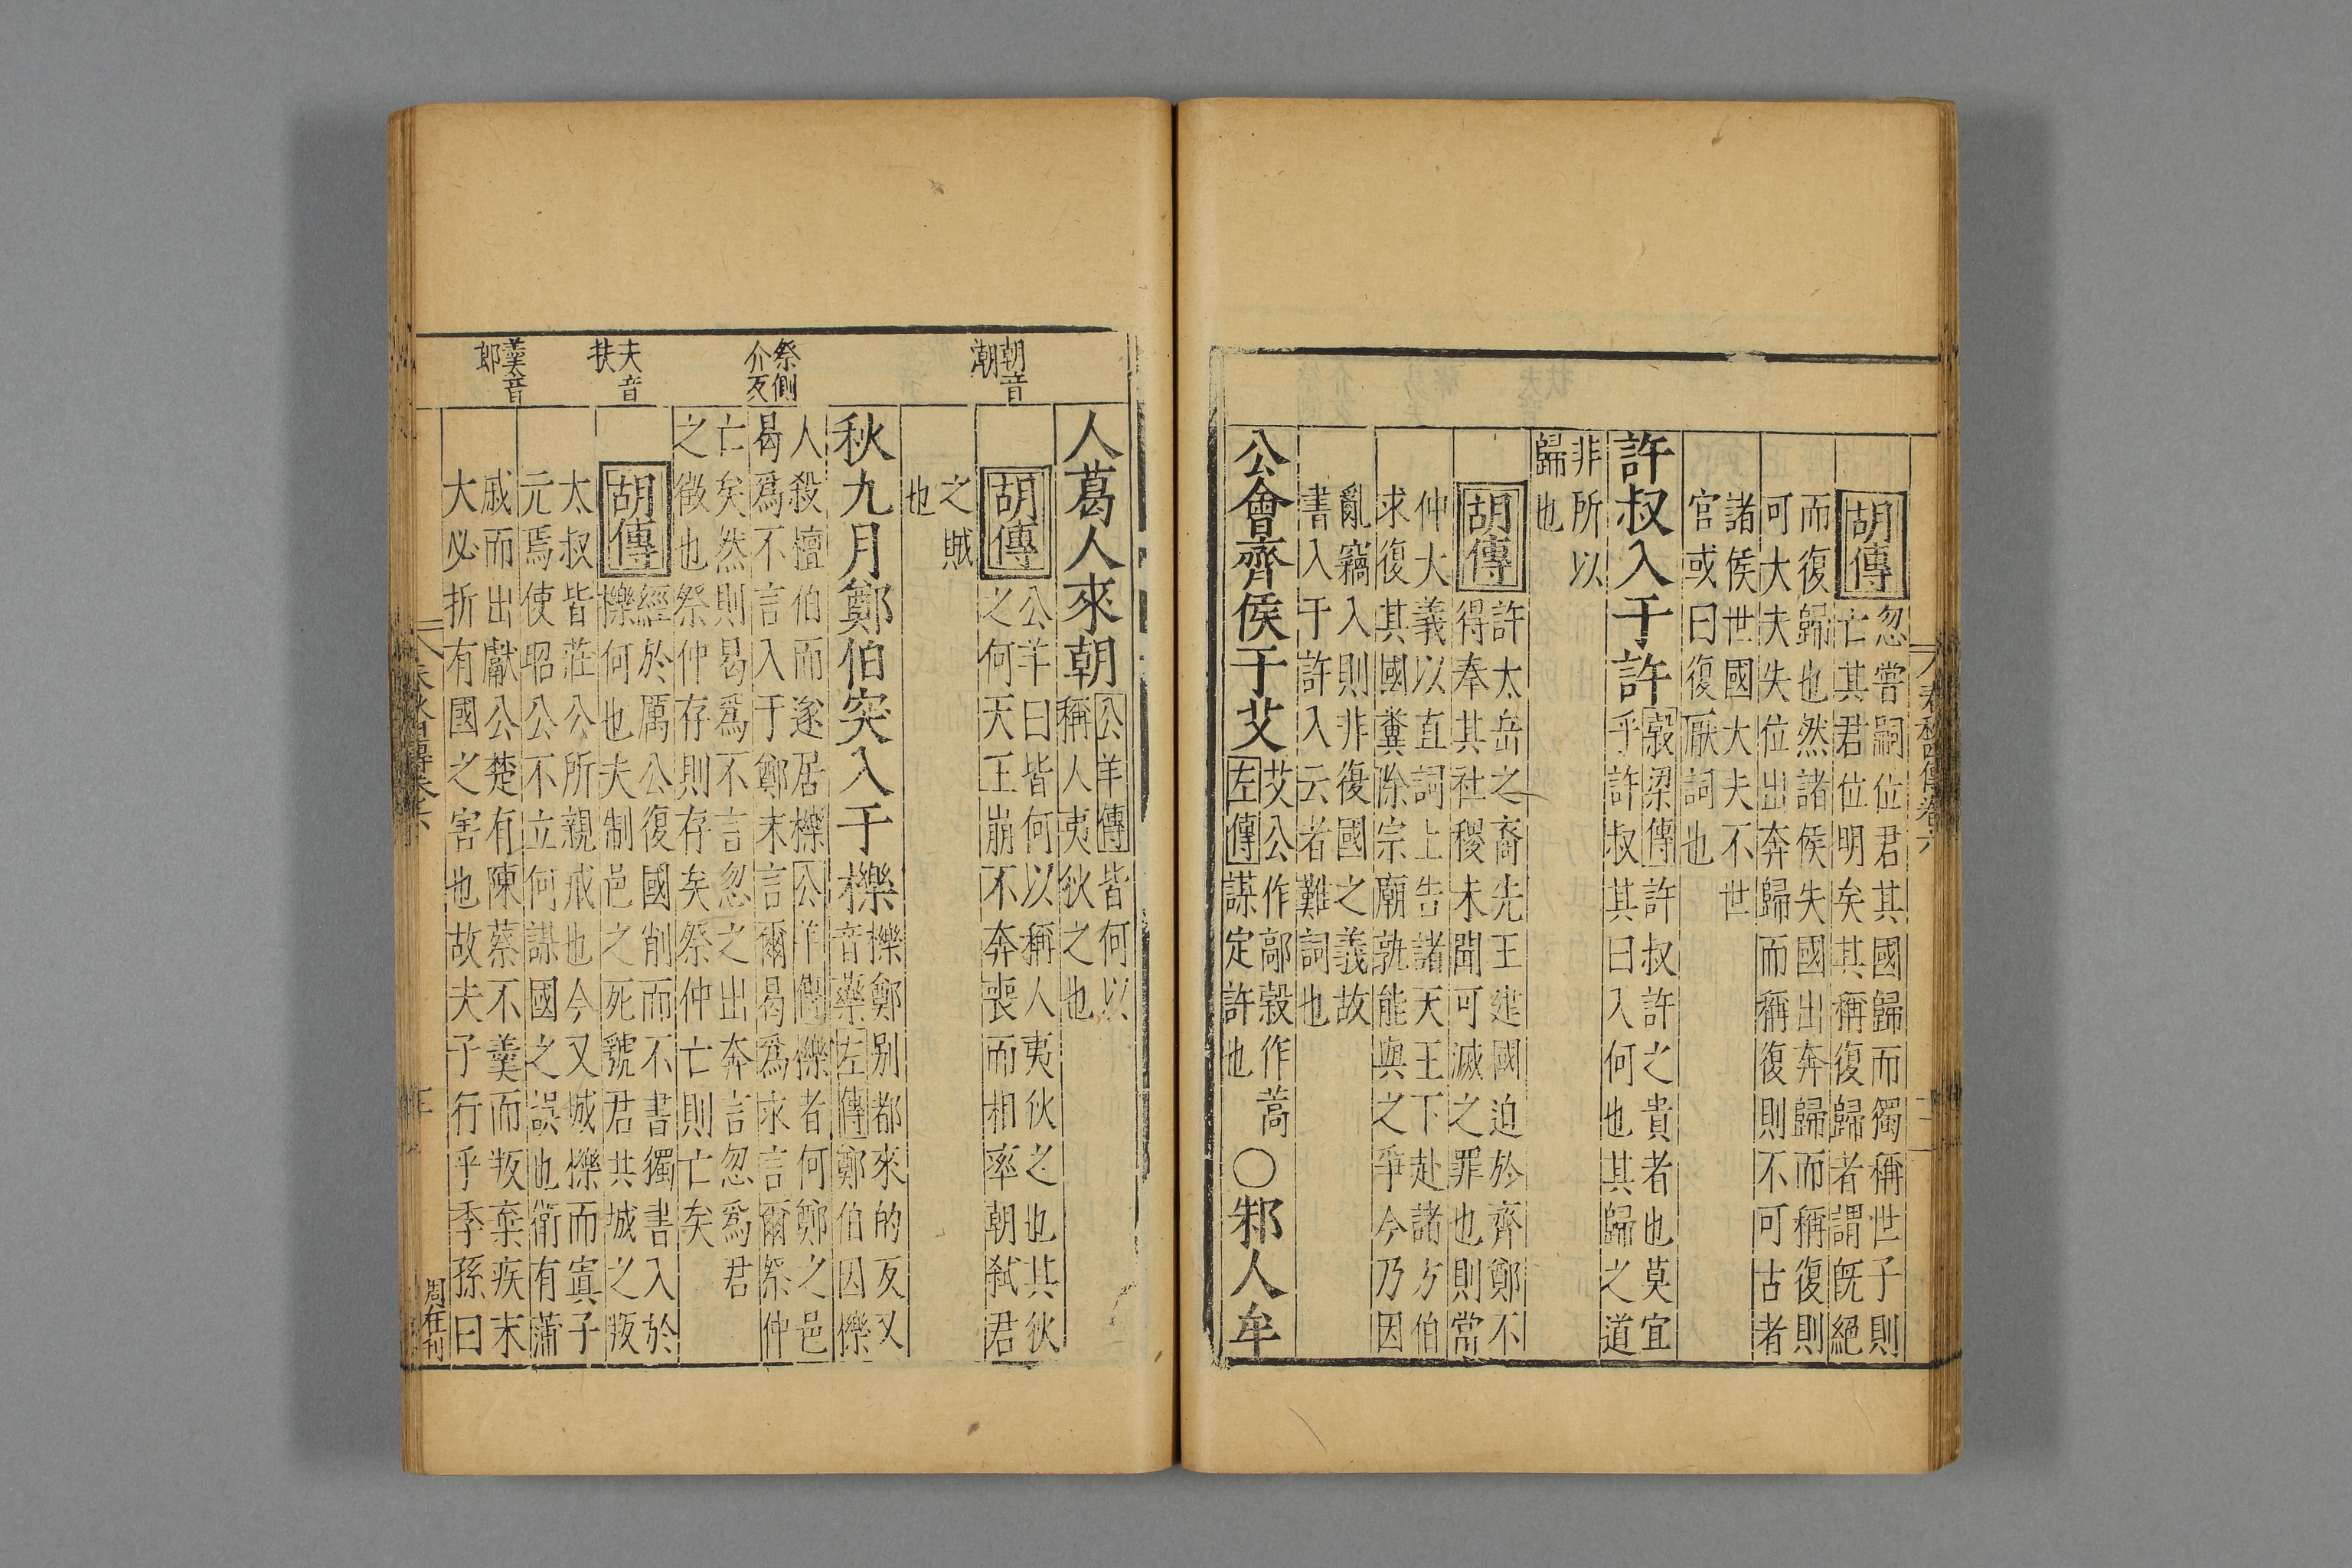 春秋四傳卷六
胡傳
忽嘗嗣位君其國歸而獨稱世子則
亡其君位明矣其稱復歸者謂旣絕
而復歸也然諸侯失國出奔歸而稱復則
可大夫失位出奔歸而稱復則不可古者
諸侯世國大夫不世
官或曰復厥詞也
許叔入于許
穀梁傳許叔許之貴者也莫宜
乎許叔其曰入何也其歸之道
非所以
歸也
胡傳
許太岳之裔先王建國迫於齊鄭不
得奉其社稷未聞可滅之罪也則當
仲大義以直詞上告諸天王下赴諸方伯
求復其國糞除宗廟孰能與之爭今乃因
亂竊入則非復國之義故
書入于許入云者難詞也
公會齊侯于艾
艾公作鄗穀作蒿
左傳謀定許也
○邾人牟
人葛人來朝
公羊傳皆何以
稱人夷狄之也
朝音
潮
胡傳
公羊曰皆何以稱人夷狄之也其狄
之何天王崩不奔喪而相率朝弑君
之賊
也
秋九月鄭伯突入于櫟
櫟鄭别都來的反又
音藥左傳鄭伯因櫟
人殺檀伯而遂居櫟公羊傳櫟者何鄭之邑
曷爲不言入于鄭末言爾曷爲末言爾祭仲
亡矣然則曷爲不言忽之出奔言忽爲君
之微也祭仲存則存矣祭仲亡則亡矣
祭側
介反
胡傳
經於厲公復國削而不書獨書入於
櫟何也夫制邑之死虢君共城之叛
太叔皆莊公所親戒也今又城櫟而寘子
元焉使昭公不立何謀國之誤也衛有蒲
戚而出獻公楚有陳蔡不羹而叛棄疾末
大必折有國之害也故夫子行乎季孫曰
夫音
扶
羹音
郎
周在刊